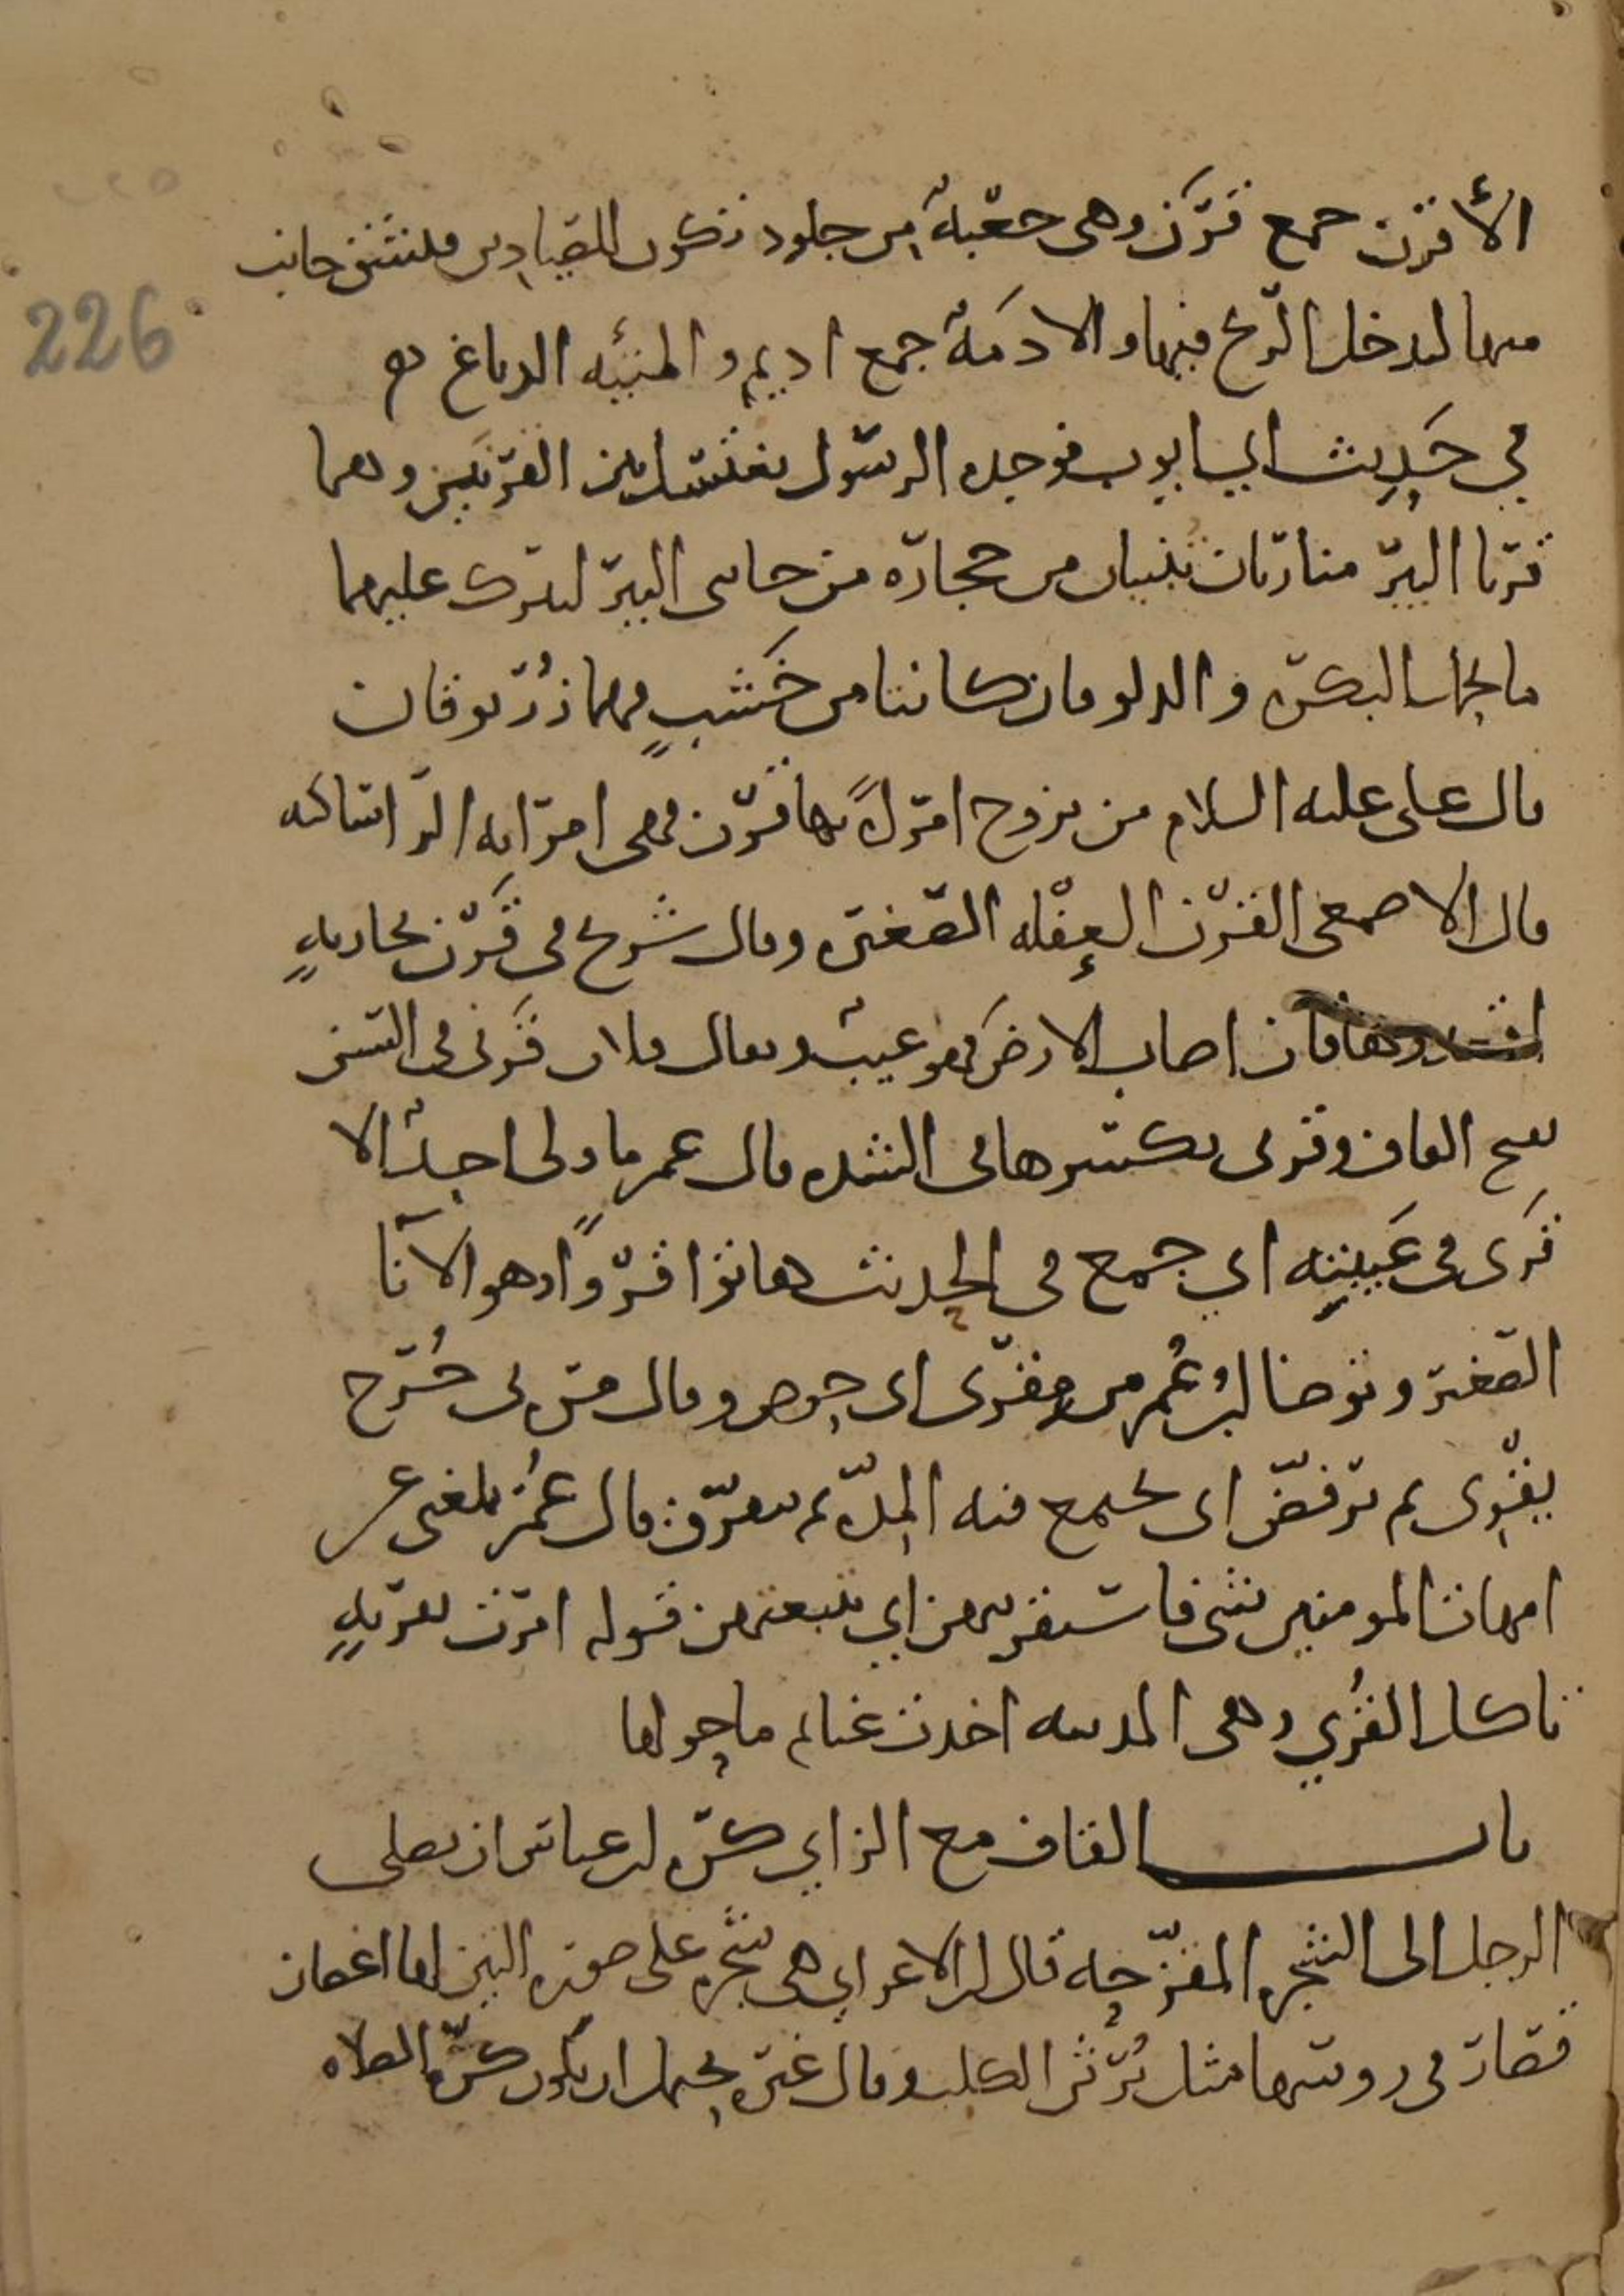 الأقرن جمع قَرَن وهي جعبة من جلود تكون للصيادين فينشق جانب
منها ليدخل الريح فيها والادمة جمع اديم والمنيئه الدباغ
في حديث ابي ايوب فوجده الرسول يغتسل بين القرنين وهما
قرنا البير منارتان تبنيان من حجارة من جانبي البير ليترك عليهما
ما يحمل البكرة والدلو فان كانتا من خشب فهما زُرنوقان
قال علي عليه السلام من تزوج امراةً بها قرن فهي امراته ان امساكه
قال الاصمعي القرن العفله الصغيره وقال شريح في قرن بجاريةٍ
فان اصاب الارض فهو عيب ويقال فلان قَرني في السن
بفتح القاف وقرني بكسرها في الشده قال عمر ما ولي احد الا
قَرَى في عَيبته اي جمع في الحديث هاتوا قروًا وهو الانا
الصغير وتوضا ابن عُمر من مقرى اي حوض وقال مرة بي جُرح
يقري ثم ترفض اي يجتمع فيه المِدّه ثم يتفرق قال عُمَر بلغني عن
امهات المومنين شي فاستقريتهن اي تتبعتهن قوله امرت بقريةٍ
تاكل القُرى وهي المدينه اخذت غنايم ما حولها
باب القاف مع الزاي كره ابن عباس ان يصلي
الرجل الى الشجرة المقزحه قال ابن الاعرابي هي شجره على صورة التين لها اغصان
قصار في روسها مثل بُرثن الكلب وقال غيره يحتمل ان يكون كره الصلاه